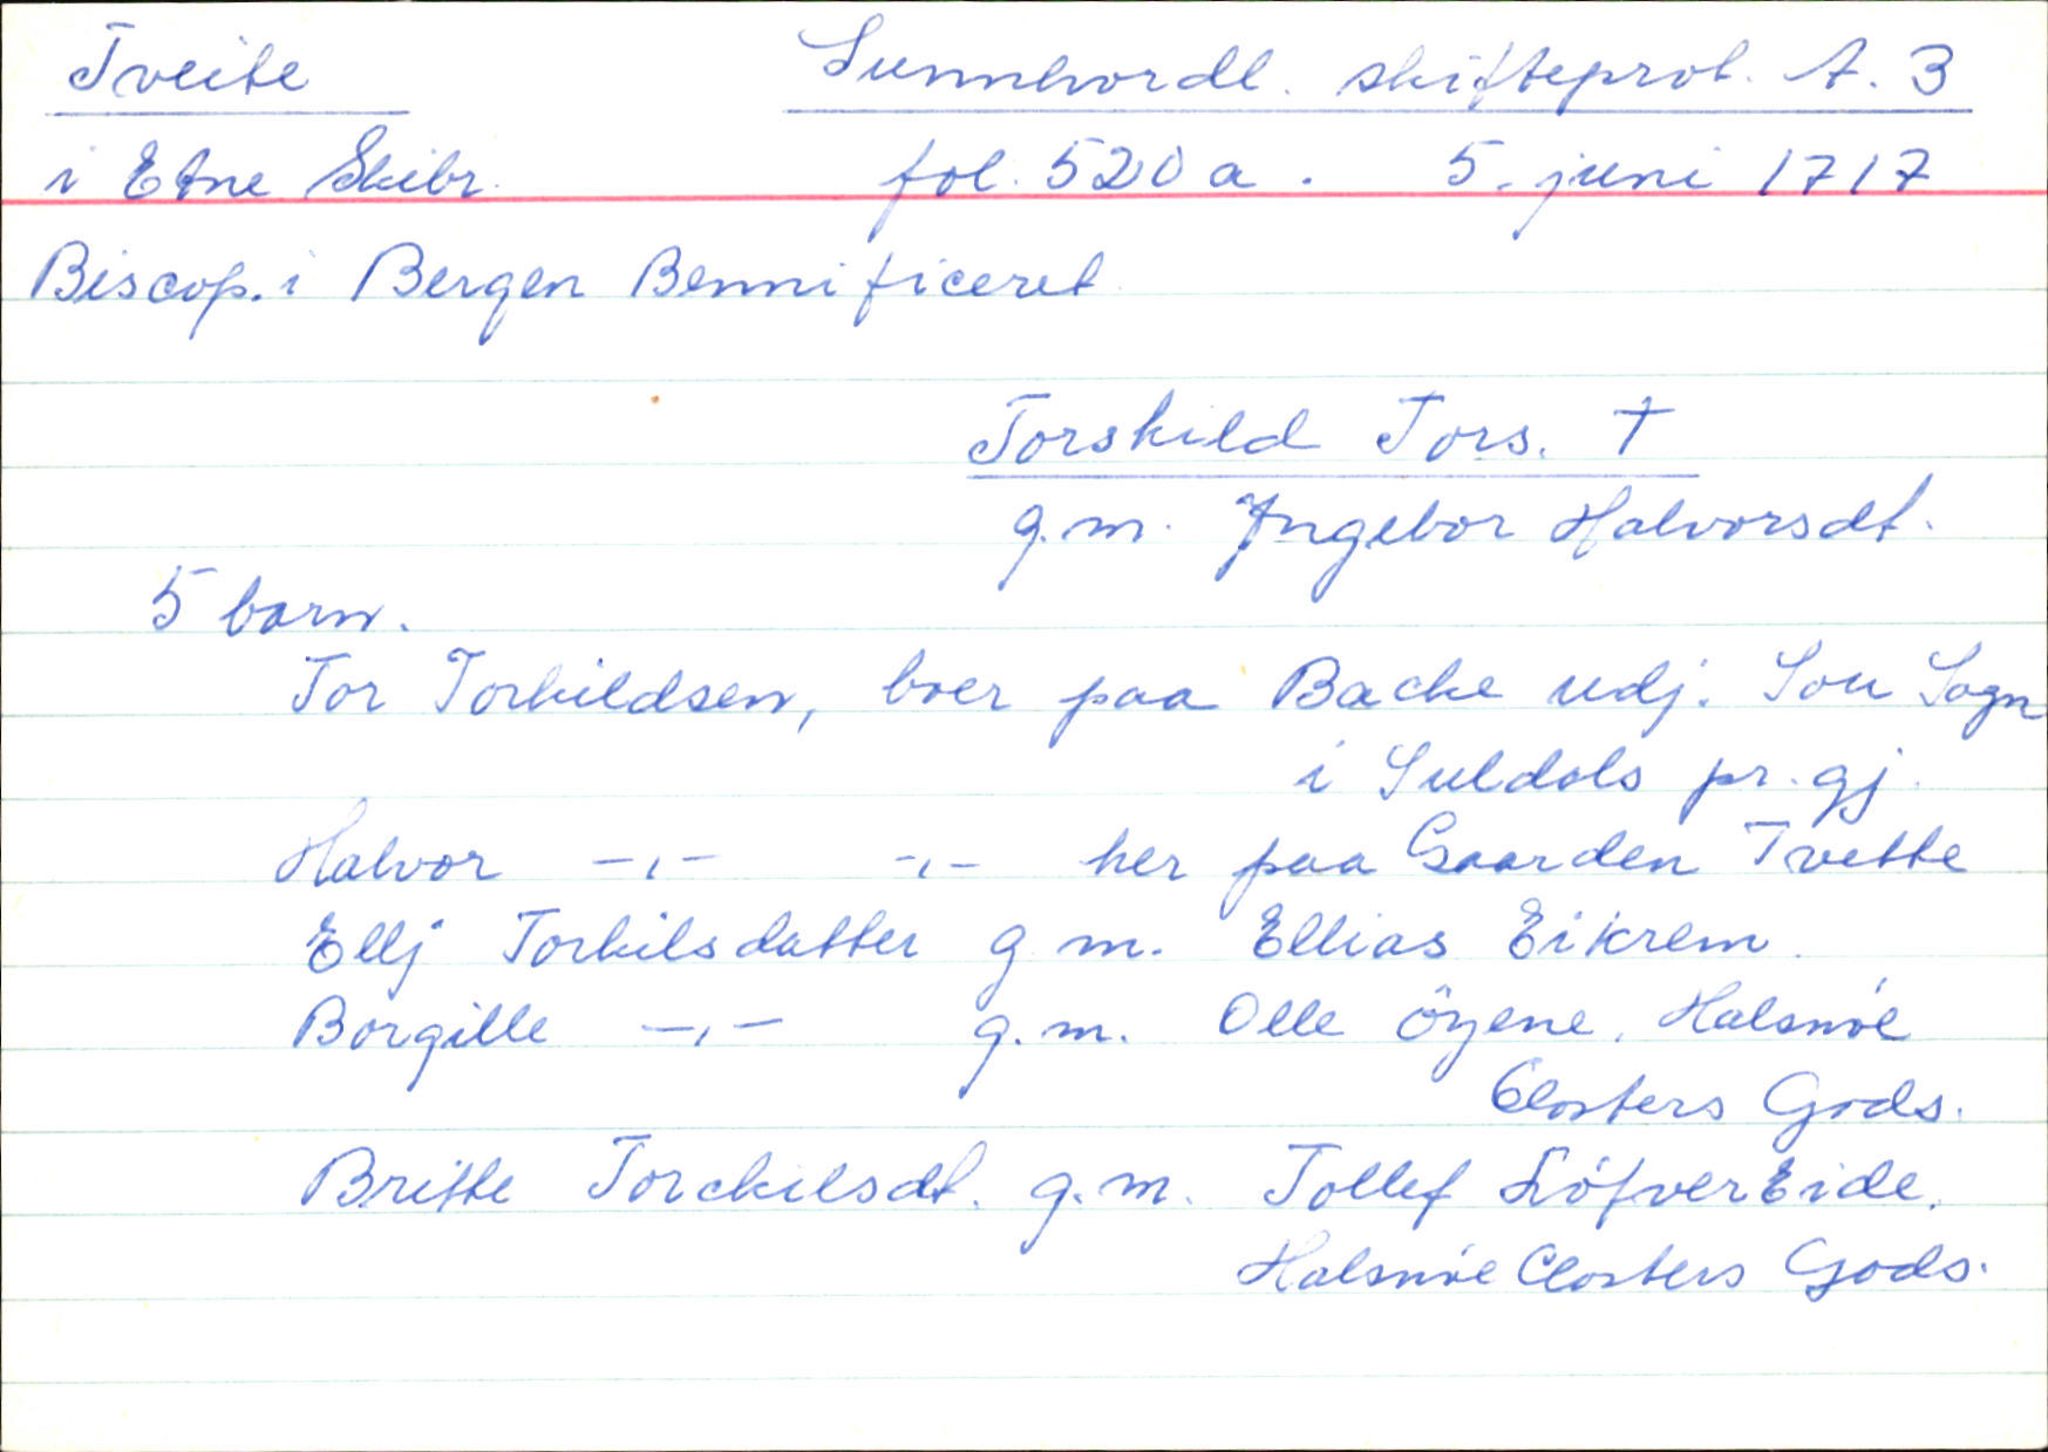 Tveite Sunnhordl. skifteprot. A. 3
i Etne Skibr. fol. 520 a. 5. juni 1717
Biscop. i Bergen Bennificeret
Torskild Tors. †
g.m. Ingebor Halvorsdt.
5 born.
Tor Torkildsen, boer paa Backe udj. Sou Sogn
i Suldals pr. gj.
Halvor -,- -,- her paa Gaarden Tvette
Ellj Torkilsdatter g m. Ellias Eikrem.
Borgille -,- g.m. Olle Öyene, Halsnöe
Closters Gods.
Britte Torckilsdt. g.m. Tollef LöfverEide.
Halsnöe Closters Gods.